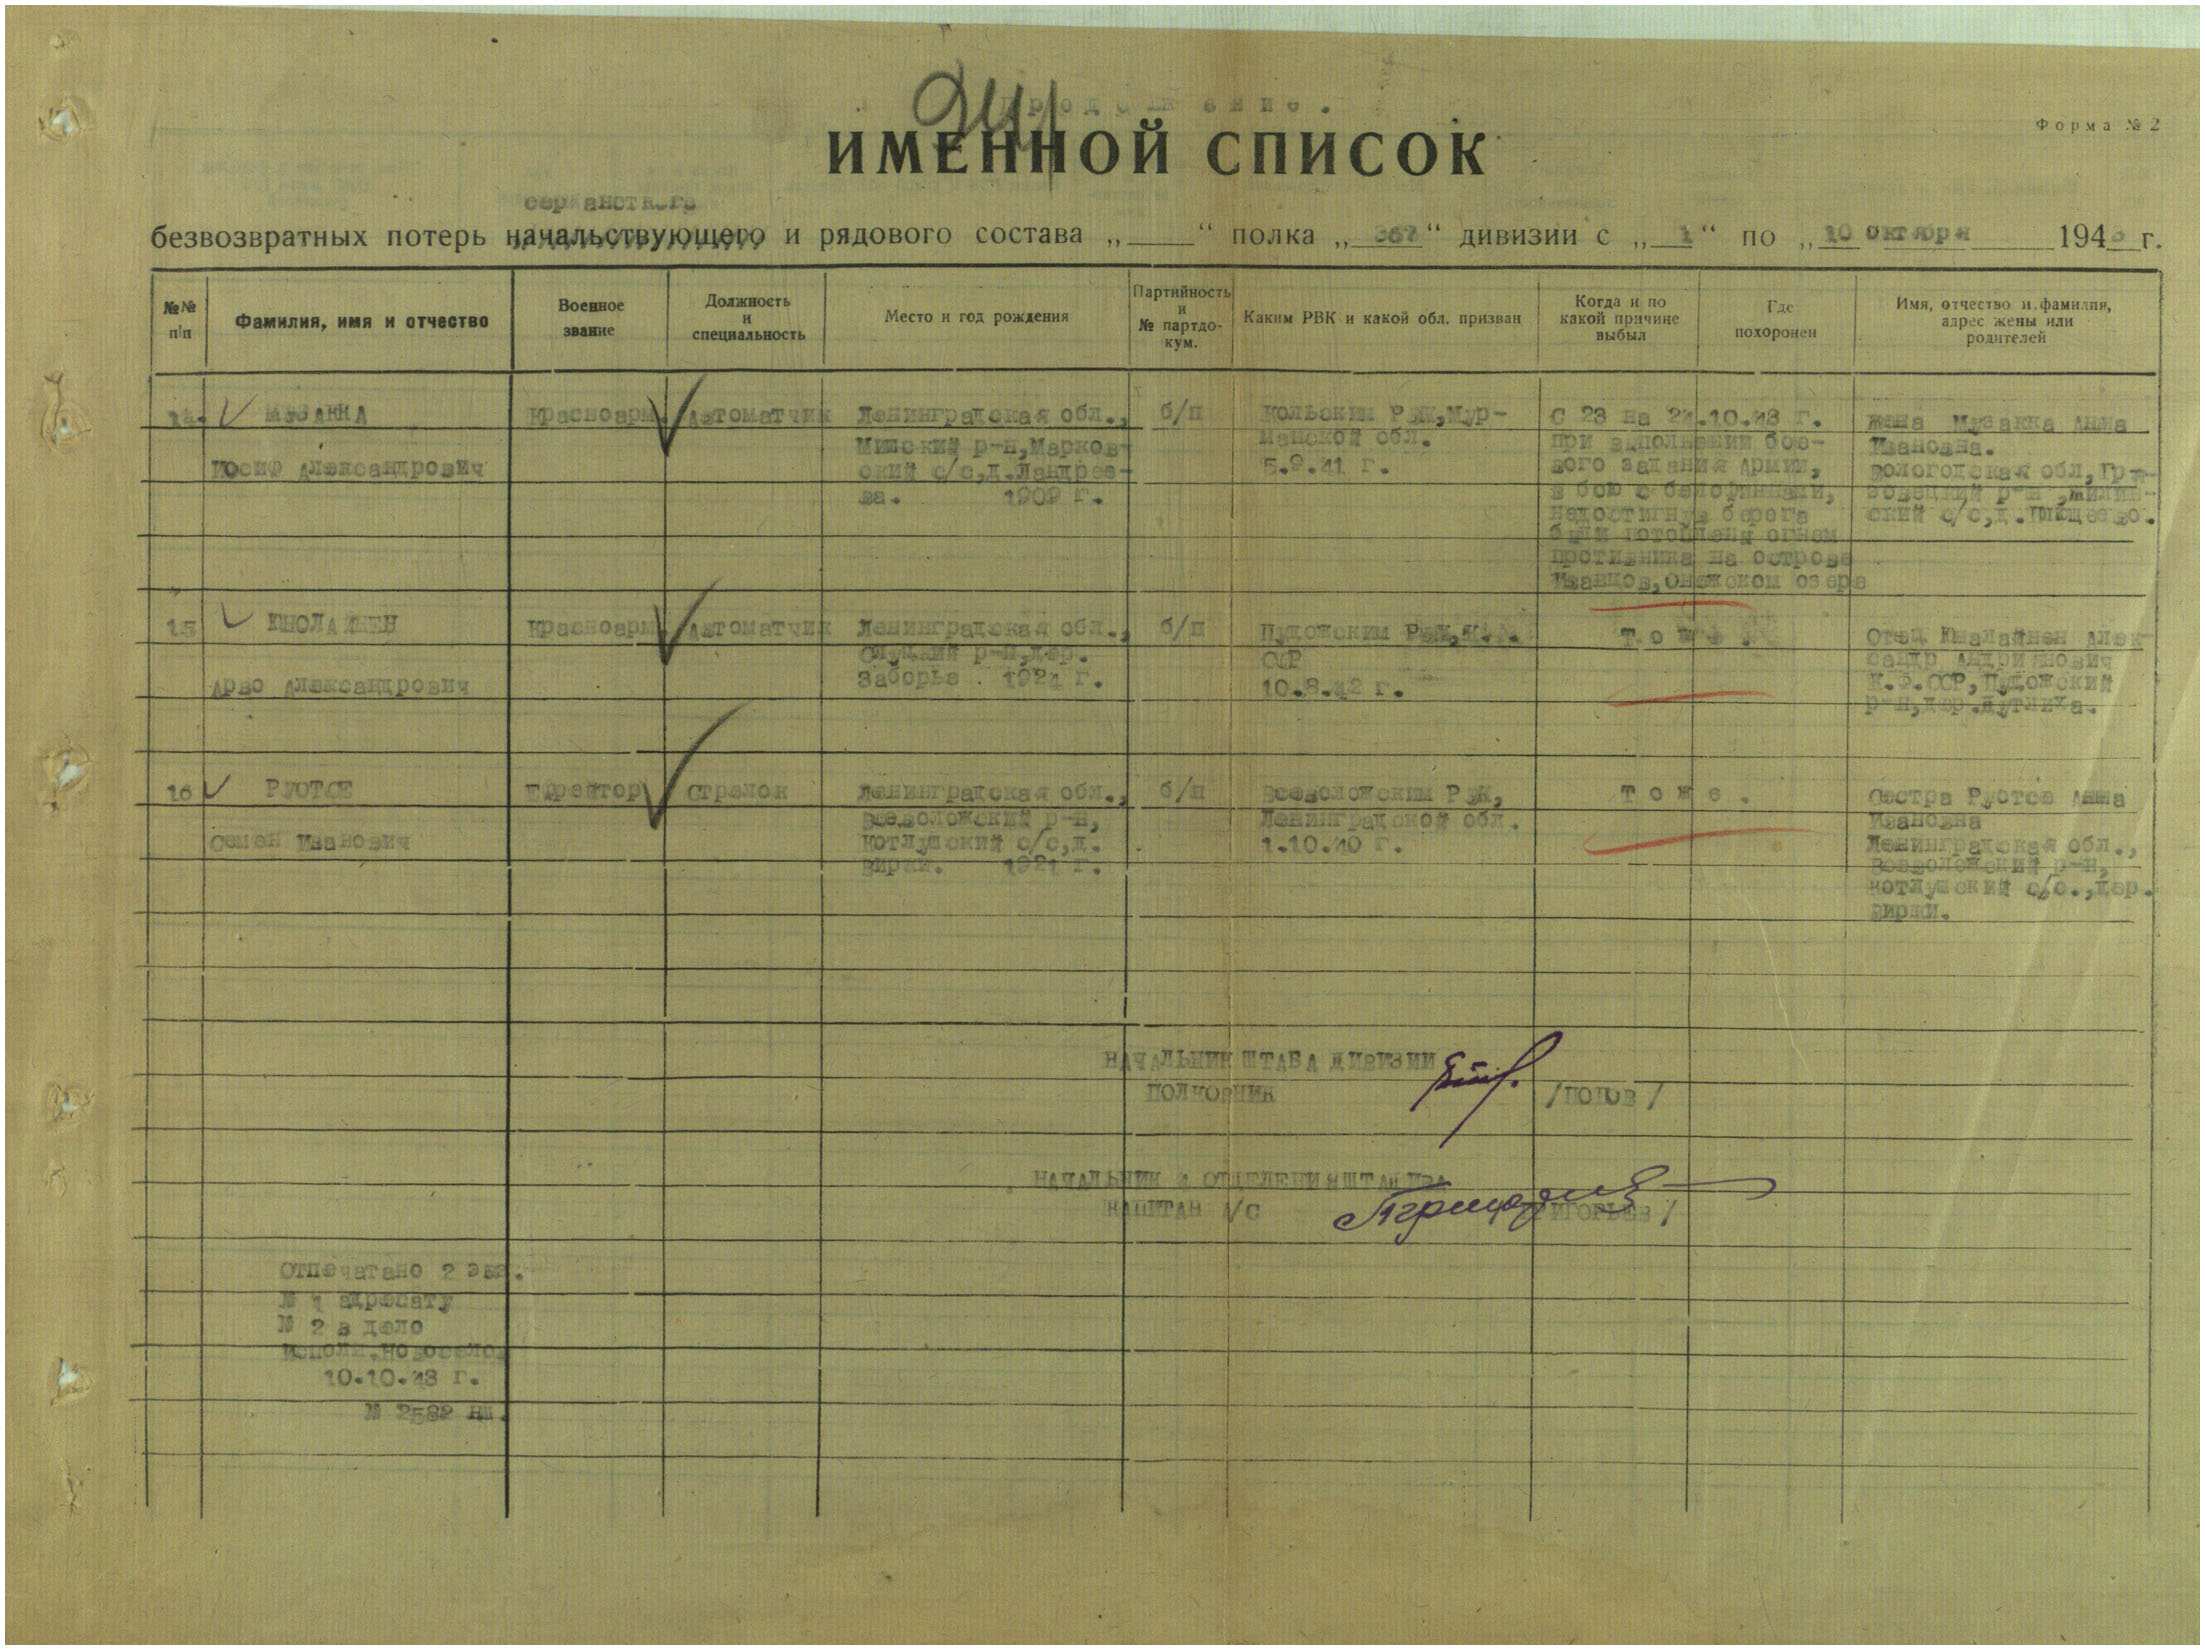 Продолжение.
Форма № 2
ИМЕННОЙ СПИСОК
сержантского
безвозвратных потерь начальствующего и рядового состава „ “ полка „ 367 “ дивизии с „ 1 “ по „ 10 октября 1943 г.
№№ п/п
Фамилия, имя и отчество
Военное звание
Должность и специальность
Место и год рождения
Партийность и № партдо-кум.
Каким РВК и какой обл. призван
Когда и по какой причине выбыл
Где похоронен
Имя, отчество и фамилия, адрес жены или родителей
14. МУЗАККА
Иосиф Александрович
Красноарм.
Автоматчик
Ленинградская обл.,
Мгинский р-н, Марков-
ский с/с, д.
1909 г.
б/п
Кольским РВК, Мур-
манской обл.
5.9.41 г.
С 23 на 24.10.43 г.
при выполнении бое-
вого задания Армии,
в бою с белофиннами,
недостигнув берега
были потоплены огнем
противника на острове
Иванцов, Онежском озера
Жена Музакка Анна
Ивановна.
Вологодская обл, Гря-
зовецкий р-н,
ский с/с, д.
15 ЮНОЛАЙНЕН
Арво Александрович
Красноарм.
Автоматчик
Ленинградская обл.,
Слуцкий р-н, дер.
Заборье. 1924 г.
б/п
Пудожским РВК, К.Ф.
ССР
10.8.42 г.
Тоже.
Отец Юналайнен Алек-
сандр Андриянович
К.Ф.ССР, Пудожский
р-н, дер.
16 РУОТСЕ
Семен Иванович
Ефрейтор
Стрелок
Ленинградская обл.,
Всеволожский р-н,
Котлушский с/с, д.
Вирки. 1921 г.
б/п
Всеволожским РВК,
Ленинградской обл.
1.10.40 г.
Тоже.
Сестра Руотсе Анна
Ивановна
Ленинградская обл.,
Всеволожский р-н,
Котлушский с/с., дер.
Вирки.
НАЧАЛЬНИК ШТАБА ДИВИЗИИ
ПОЛКОВНИК /ПОПОВ/
НАЧАЛЬНИК 4 ОТДЕЛЕНИЯ ШТАДИВА
КАПИТАН А/С ГРИГОРЬЕВ/
Отпечатано 2 экз.
№ 1 адресату
№ 2 в дело
Исполн. Новоселов
10.10.43 г.
№ 2582 нш.